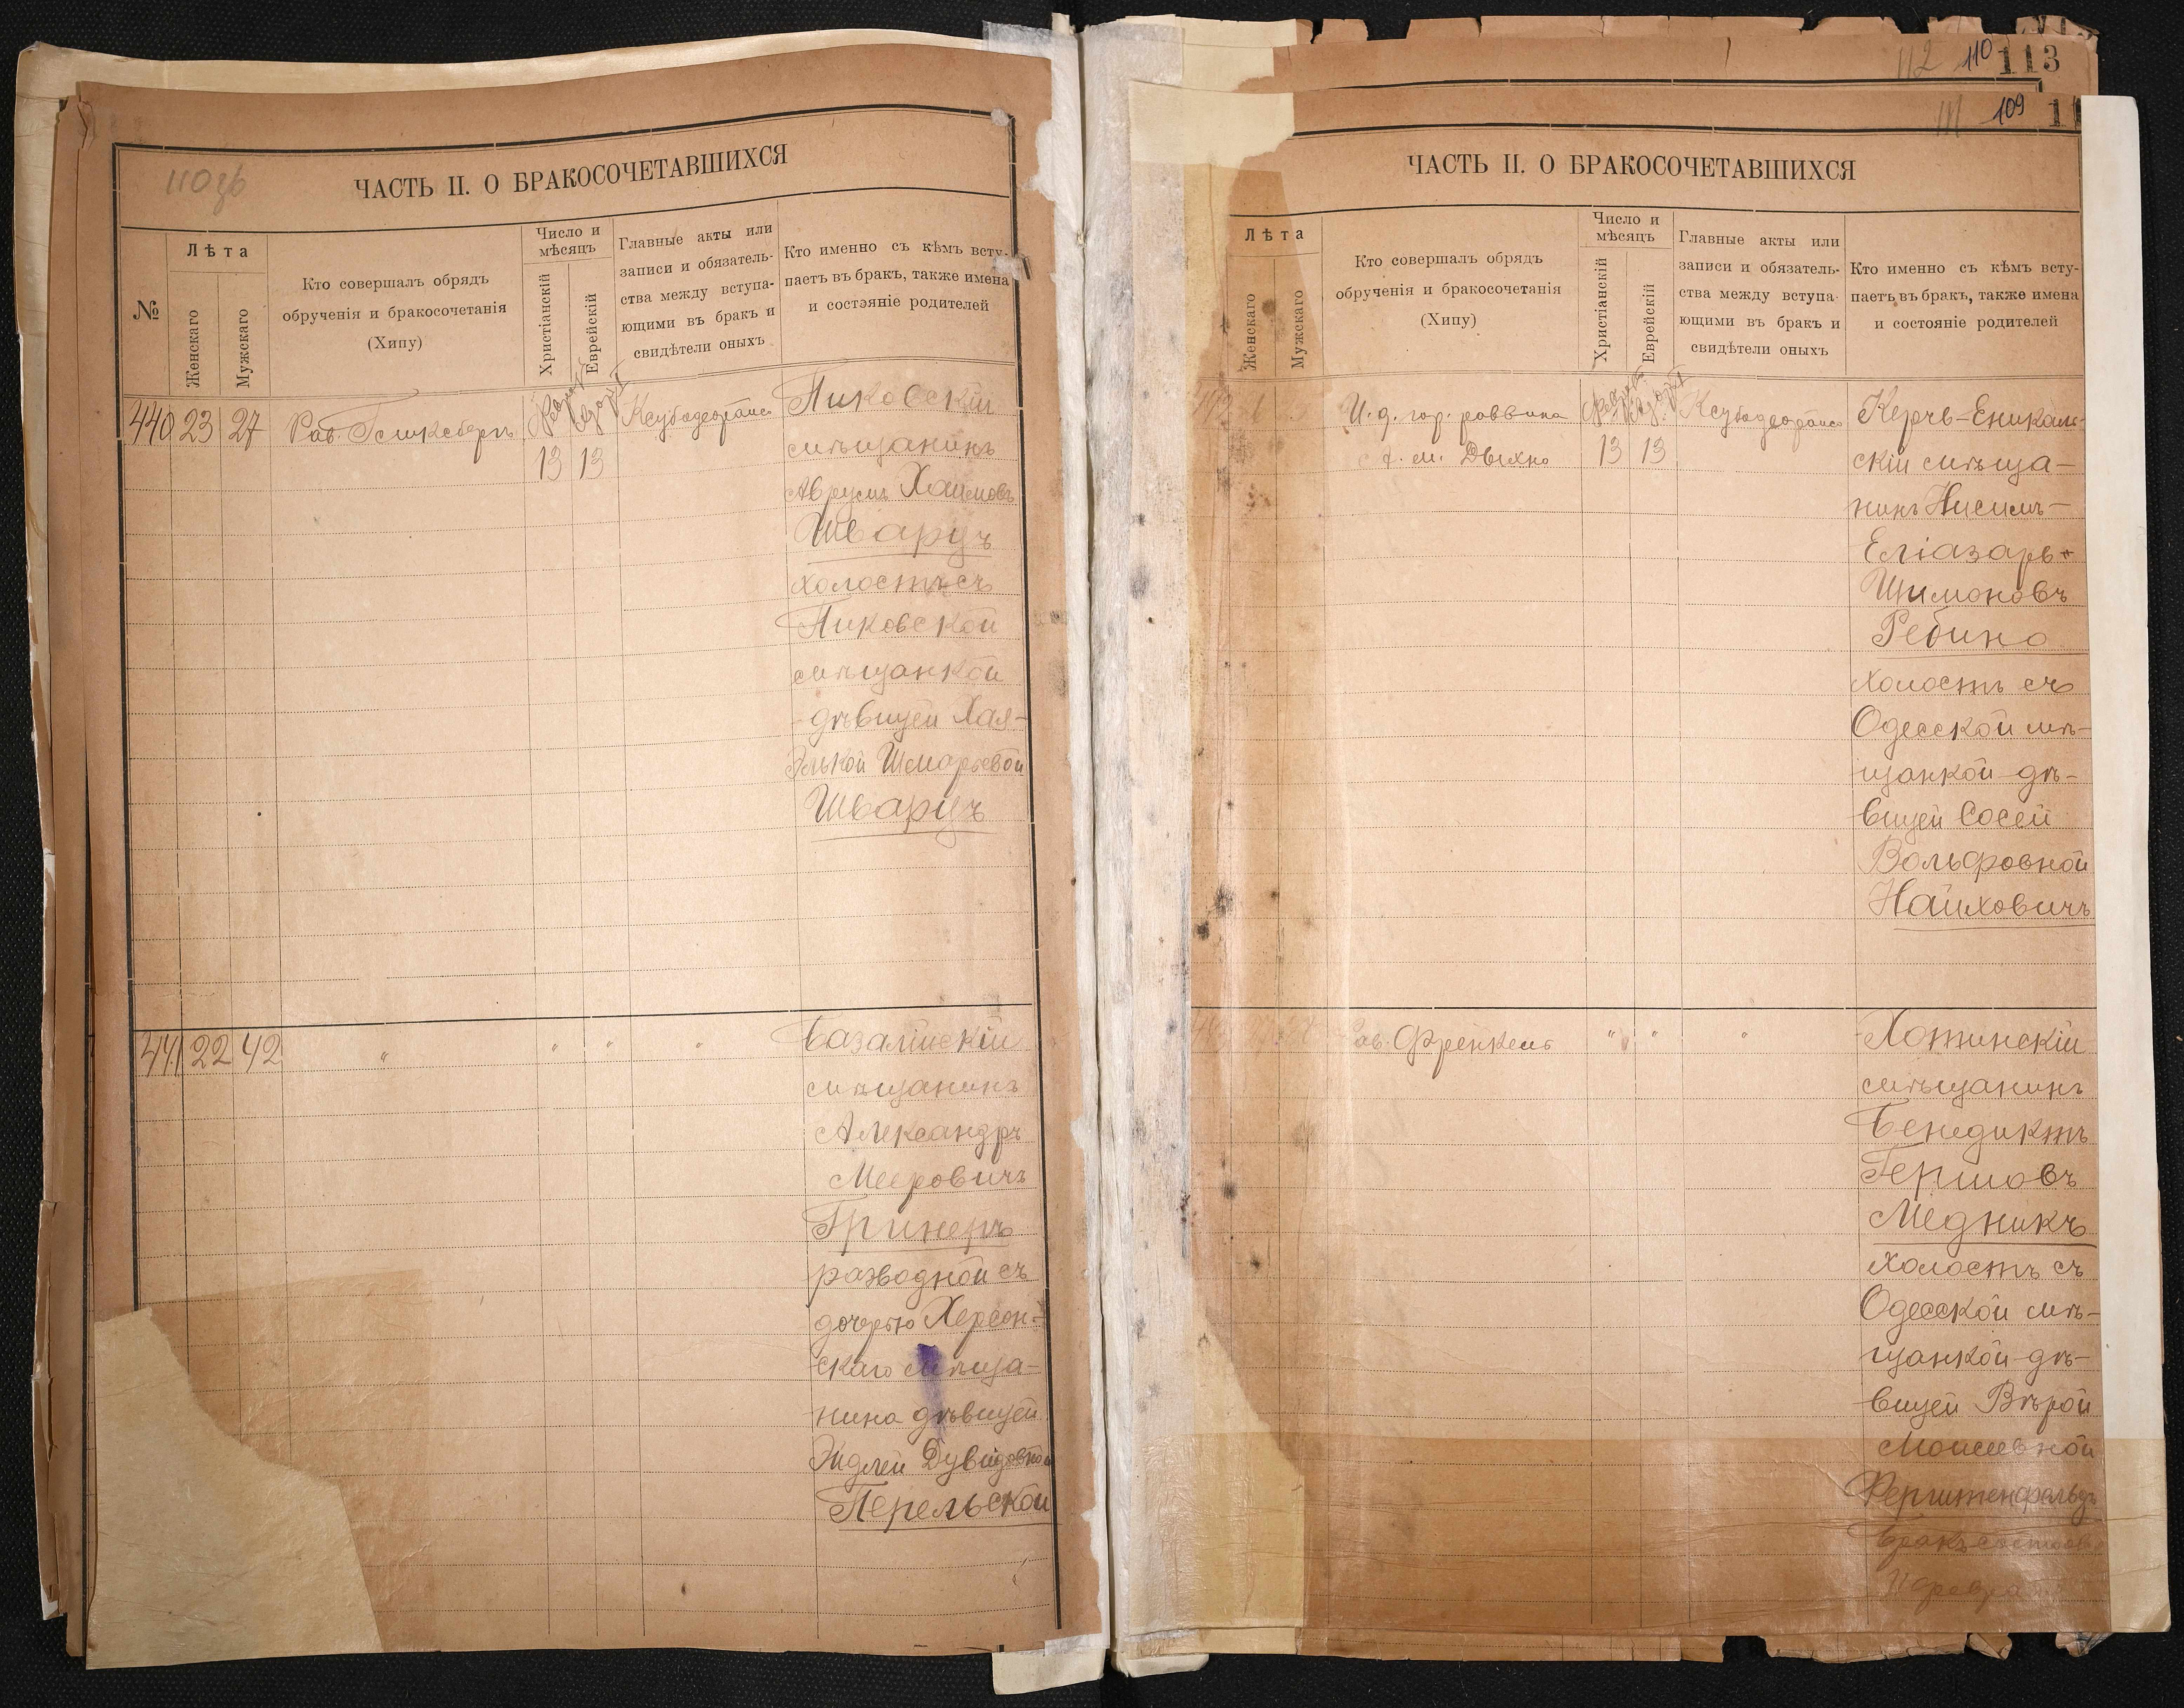 110 об
ЧАСТЬ II. О БРАКОСОЧЕТАВШИХСЯ
№
Лѣта
Женскаго
Мужскаго
Кто совершалъ обрядъ
обрученія и бракосочетанія
(Хипу)
Число и
мѣсяцъ
Христіанскій
Еврейскій
Главные акты или
записи и обязатель-
ства между вступа-
ющими въ бракъ и
свидѣтели оныхъ
Кто именно съ кѣмъ всту-
паетъ въ бракъ, также имена
и состояніе родителей
440 23 27
Рав.
13 13
Пиковскій
мѣщанинъ
Аврумъ Хаимовъ
Шварцъ
холостъ съ
Пиковской
мѣщанкой
дѣвицей Хая-
Элькой Шмарьевой
Шварцъ
441 22 42 " " " "
Базалійскій
мѣщанинъ
Александръ
Мееровичъ
Гринеръ
разводной съ
дочерью Херсон-
скаго мѣща-
нина дѣвицей
Эйдлей Дувидовной
Перельской
112 110 113
111 109
ЧАСТЬ II. О БРАКОСОЧЕТАВШИХСЯ
Лѣта
Женскаго
Мужскаго
Кто совершалъ обрядъ
обрученія и бракосочетанія
(Хипу)
Число и
мѣсяцъ
Христіанскій
Еврейскій
Главные акты или
записи и обязатель-
ства между вступа-
ющими въ бракъ и
свидѣтели оныхъ
Кто именно съ кѣмъ всту-
паетъ въ бракъ, также имена
и состояніе родителей
И. д. гор. раввина
Дыхно
13 13
Керчь-Еникаль-
скій мѣща-
нинъ Нисимъ-
Еліазаръ
Шимоновъ
Ребино
холостъ съ
Одесской мѣ-
щанкой дѣ-
вицей Сосей
Вольфовной
Найховичъ
Рав. Френкель " " "
Хотинскій
мѣщанинъ
Бенедиктъ
Гершовъ
Медникъ
холостъ съ
Одесской мѣ-
щанкой дѣ-
вицей Вѣрой
Моисеевной
Ферштенфельдъ
Бракъ